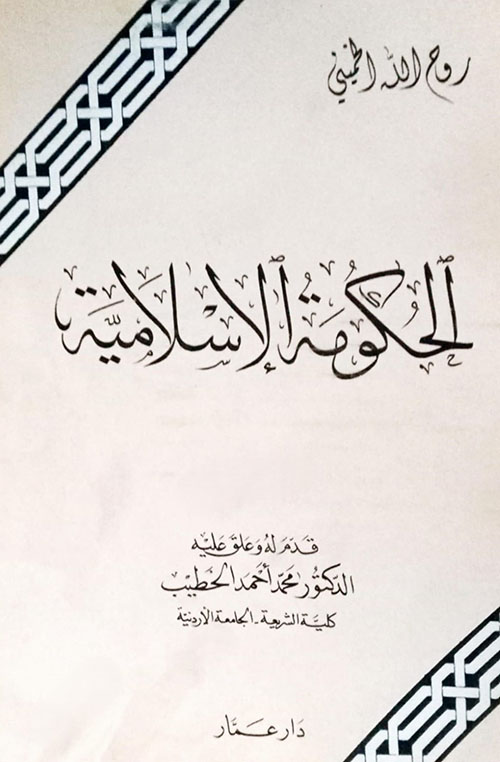 روح الله الخميني
الحُكُومَة الإسْلَاميَّة
قدّمَ لهُ وعَلقَ عَليْه
الدكتور محمّد أحمَد الخطيْب
كليَّة الشريعة - الجامعة الأردنيّة
دَار عَمَّار